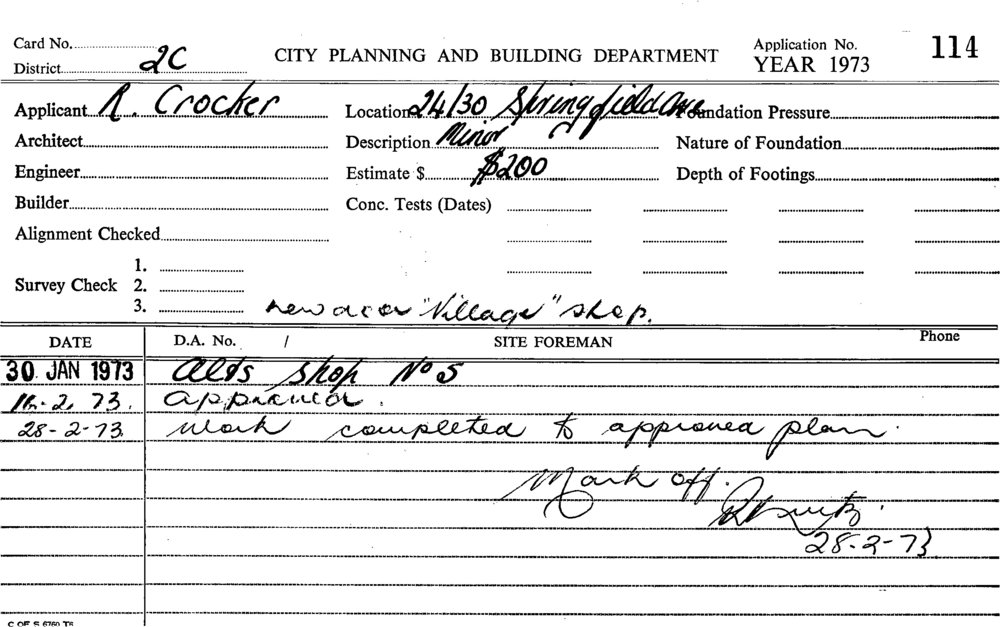 Card No.
District 2C
CITY PLANNING AND BUILDING DEPARTMENT
Application No. 114
YEAR 1973
Applicant R. Crocker
Location 24/30 Springfield Ave
Foundation Pressure
Architect
Description Minor
Nature of Foundation
Engineer
Estimate $ $200
Depth of Footings
Builder
Conc. Tests (Dates)
Alignment Checked
Survey Check 1.
2.
3.
near "Village" shop.
DATE D.A. No. / SITE FOREMAN Phone
30 JAN 1973 Alts Shop No 5
2. 73. approved.
28-2-73. Work completed to approved plan.
Mark off.
28-2-73
C OF S 6760 T5